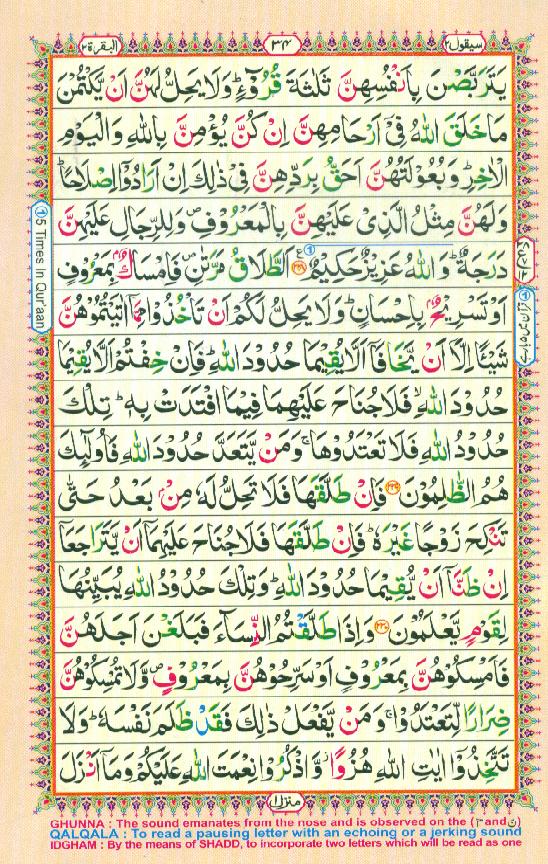 سيقول ٢
٣٤
البقرة ٢
يَتَرَبَّصْنَ بِاَنْفُسِهِنَّ ثَلٰثَةَ قُرُوْٓءٍ ؕ وَلَا يَحِلُّ لَهُنَّ اَنْ يَّكْتُمْنَ
مَا خَلَقَ اللّٰهُ فِیْۤ اَرْحَامِهِنَّ اِنْ كُنَّ يُؤْمِنَّ بِاللّٰهِ وَالْيَوْمِ
الْاٰخِرِ ؕ وَبُعُوْلَتُهُنَّ اَحَقُّ بِرَدِّهِنَّ فِیْ ذٰلِكَ اِنْ اَرَادُوْۤا اِصْلَاحًا ؕ
وَلَهُنَّ مِثْلُ الَّذِیْ عَلَيْهِنَّ بِالْمَعْرُوْفِ ۪ وَلِلرِّجَالِ عَلَيْهِنَّ
دَرَجَةٌ ؕ وَاللّٰهُ عَزِيْزٌ حَكِيْمٌ ﴿٢٢٨﴾ اَلطَّلَاقُ مَرَّتٰنِ ۪ فَاِمْسَاكٌۢ بِمَعْرُوْفٍ
اَوْ تَسْرِيْحٌۢ بِاِحْسَانٍ ؕ وَلَا يَحِلُّ لَكُمْ اَنْ تَاْخُذُوْا مِمَّاۤ اٰتَيْتُمُوْهُنَّ
شَيْـًٔا اِلَّاۤ اَنْ يَّخَافَاۤ اَلَّا يُقِيْمَا حُدُوْدَ اللّٰهِ ؕ فَاِنْ خِفْتُمْ اَلَّا يُقِيْمَا
حُدُوْدَ اللّٰهِ ۙ فَلَا جُنَاحَ عَلَيْهِمَا فِيْمَا افْتَدَتْ بِهٖ ؕ تِلْكَ
حُدُوْدُ اللّٰهِ فَلَا تَعْتَدُوْهَا ۚ وَمَنْ يَّتَعَدَّ حُدُوْدَ اللّٰهِ فَاُولٰٓئِكَ
هُمُ الظّٰلِمُوْنَ ﴿٢٢٩﴾ فَاِنْ طَلَّقَهَا فَلَا تَحِلُّ لَهٗ مِنْۢ بَعْدُ حَتّٰی
تَنْكِحَ زَوْجًا غَيْرَهٗ ؕ فَاِنْ طَلَّقَهَا فَلَا جُنَاحَ عَلَيْهِمَاۤ اَنْ يَّتَرَاجَعَاۤ
اِنْ ظَنَّاۤ اَنْ يُّقِيْمَا حُدُوْدَ اللّٰهِ ؕ وَتِلْكَ حُدُوْدُ اللّٰهِ يُبَيِّنُهَا
لِقَوْمٍ يَّعْلَمُوْنَ ﴿٢٣٠﴾ وَاِذَا طَلَّقْتُمُ النِّسَآءَ فَبَلَغْنَ اَجَلَهُنَّ
فَاَمْسِكُوْهُنَّ بِمَعْرُوْفٍ اَوْ سَرِّحُوْهُنَّ بِمَعْرُوْفٍ ۪ وَّلَا تُمْسِكُوْهُنَّ
ضِرَارًا لِّتَعْتَدُوْا ۚ وَمَنْ يَّفْعَلْ ذٰلِكَ فَقَدْ ظَلَمَ نَفْسَهٗ ؕ وَلَا
تَتَّخِذُوْۤا اٰيٰتِ اللّٰهِ هُزُوًا ؗ وَّاذْكُرُوْا نِعْمَتَ اللّٰهِ عَلَيْكُمْ وَمَاۤ اَنْزَلَ
① 5 Times in Qur'aan
منزل ١
GHUNNA : The sound emanates from the nose and is observed on the (ن and م)
QALQALA : To read a pausing letter with an echoing or a jerking sound
IDGHAM : By the means of SHADD, to incorporate two letters which will be read as one